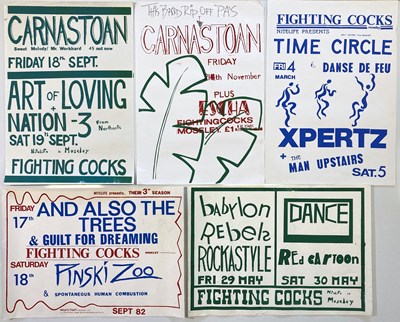 CARNASTOAN
Sweet Melody/ Mr. Workhard 45 out now
FRIDAY 18TH SEPT.
ART OF LOVING
+
NATION - 3 from Northants
SAT 19TH SEPT.
Nitelife in Moseley
FIGHTING COCKS
THIS BAND RIP OFF PA'S
CARNASTOAN
FRIDAY
November
PLUS
FIGHTINGCOCKS
MOSELEY. £1
FIGHTING COCKS
NITELIFE PRESENTS
TIME CIRCLE
FRI 4 MARCH
& DANSE DE FEU
XPERTZ
+ THE MAN UPSTAIRS
SAT. 5
NITELIFE presents.. THEIR 3RD SEASON
FRIDAY 17TH
AND ALSO THE TREES
& GUILT FOR DREAMING
FIGHTING COCKS MOSELEY
SATURDAY 18TH
PINSKI ZOO
& SPONTANEOUS HUMAN COMBUSTION
SEPT 82
babylon
Rebels
ROCKASTYLE
FRI 29 MAY
DANCE
REd CARTOON
SAT 30 MAY
FIGHTING COCKS Nitelife in Moseley